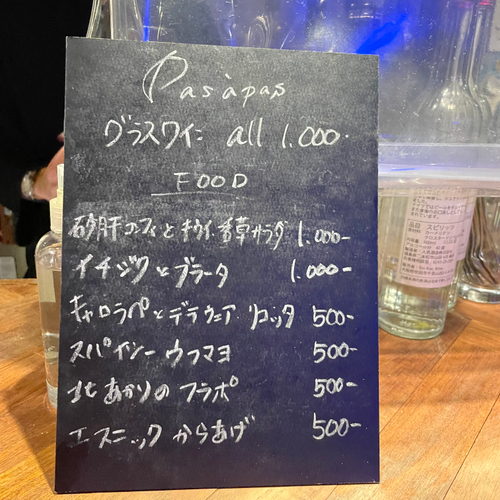 Pas à pas
グラスワイン all 1.000-
FOOD
砂肝コンフィとキウイ 香草サラダ 1.000-
イチジクとブラータ 1.000-
キャロラペとデラウェア リコッタ 500-
スパイシーウフマヨ 500-
北あかりのフラポ 500-
エスニックからあげ 500-
品目 スピリッツ